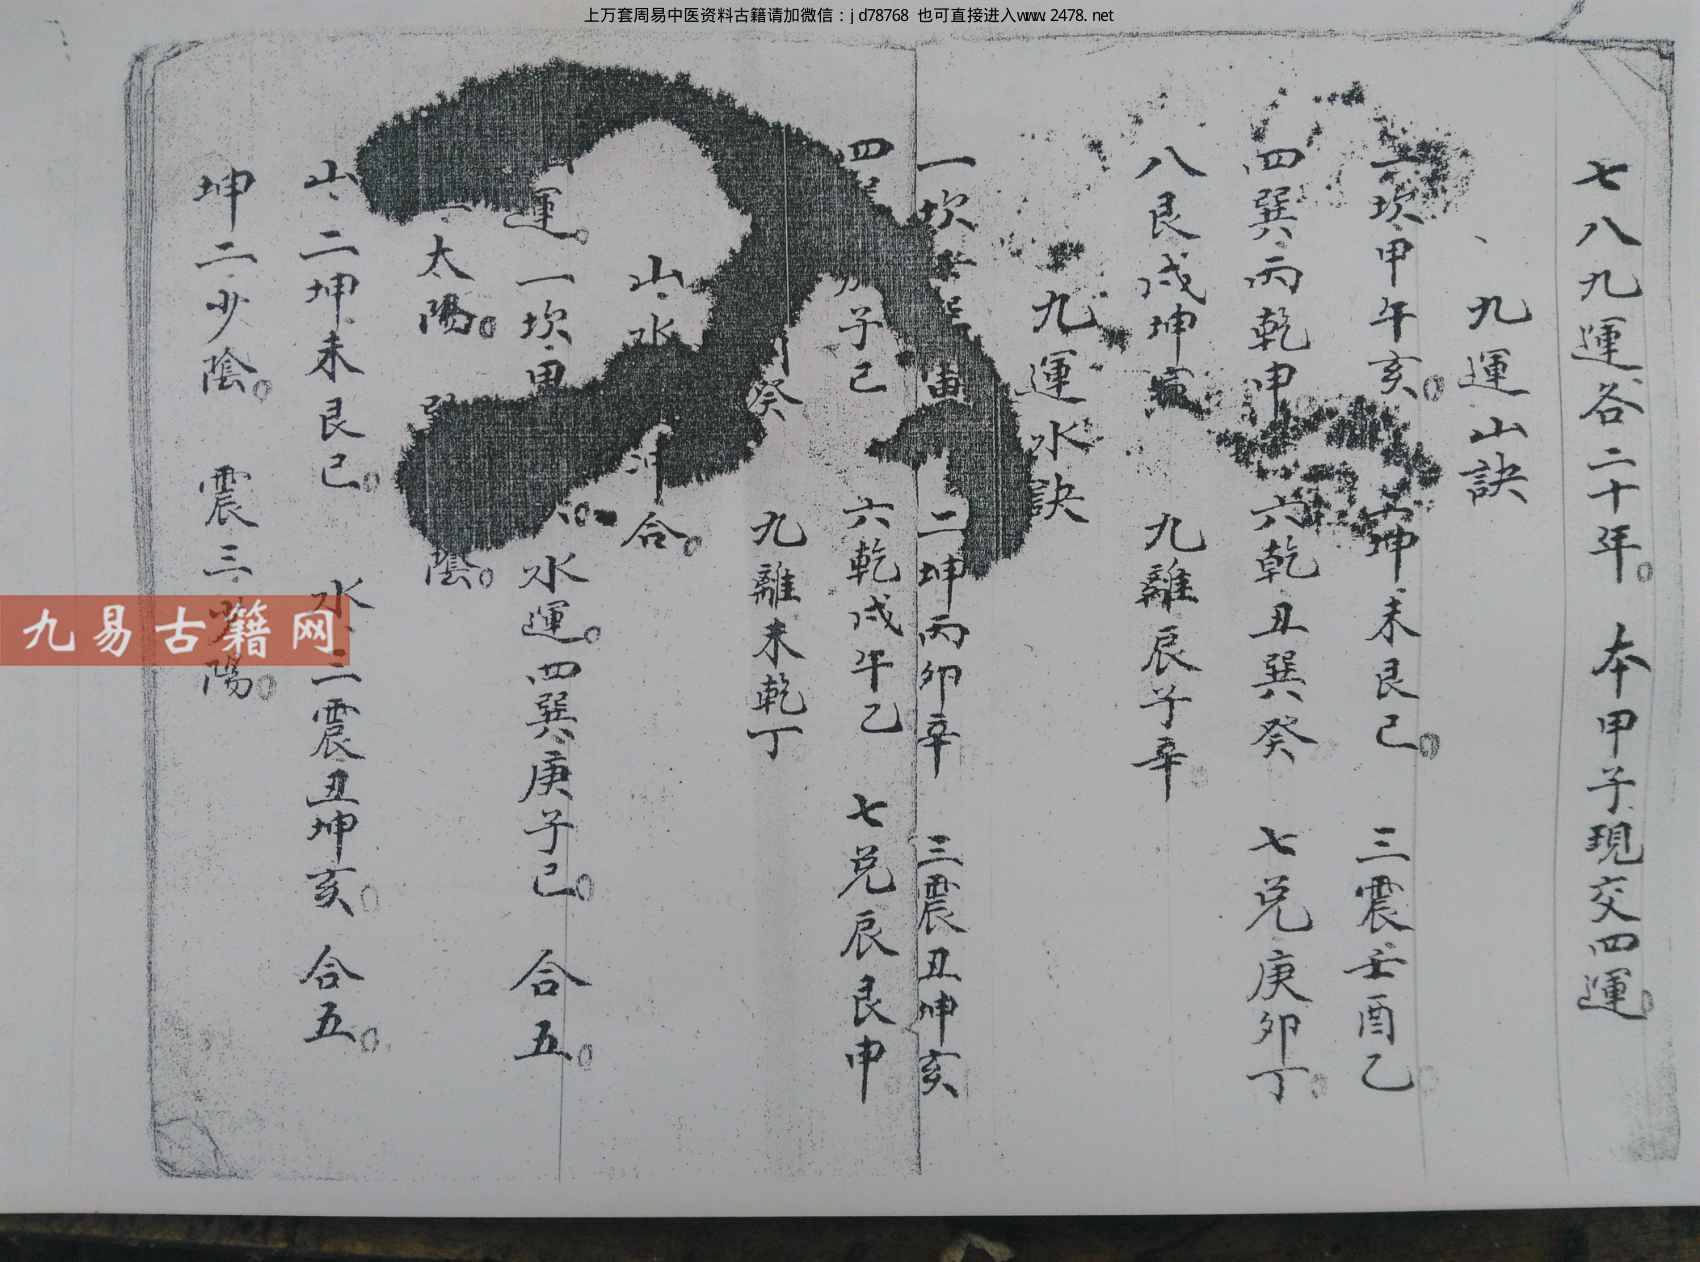 上万套周易中医资料古籍请加微信：jd78768 也可直接进入www.2478.net
七八九運各二十年。 本甲子現交四運。
九運山訣
坎甲午亥。 坤未艮己。 三震壬酉乙。
四巽丙乾申 六乾丑巽癸 七兌庚卯丁。
八艮戌坤寅 九離辰子辛
九運水訣
一坎 二坤丙卯辛 三震丑坤亥
四 子己 六乾戌午乙 七兌辰艮申
癸 九離未乾丁
山水 合。
運。一坎甲 水運。四巽庚子己。 合五。
太陽。 陰。
山二坤未艮己。 水三震丑坤亥。 合五。
坤二少陰。 震三少陽。
九易古籍网